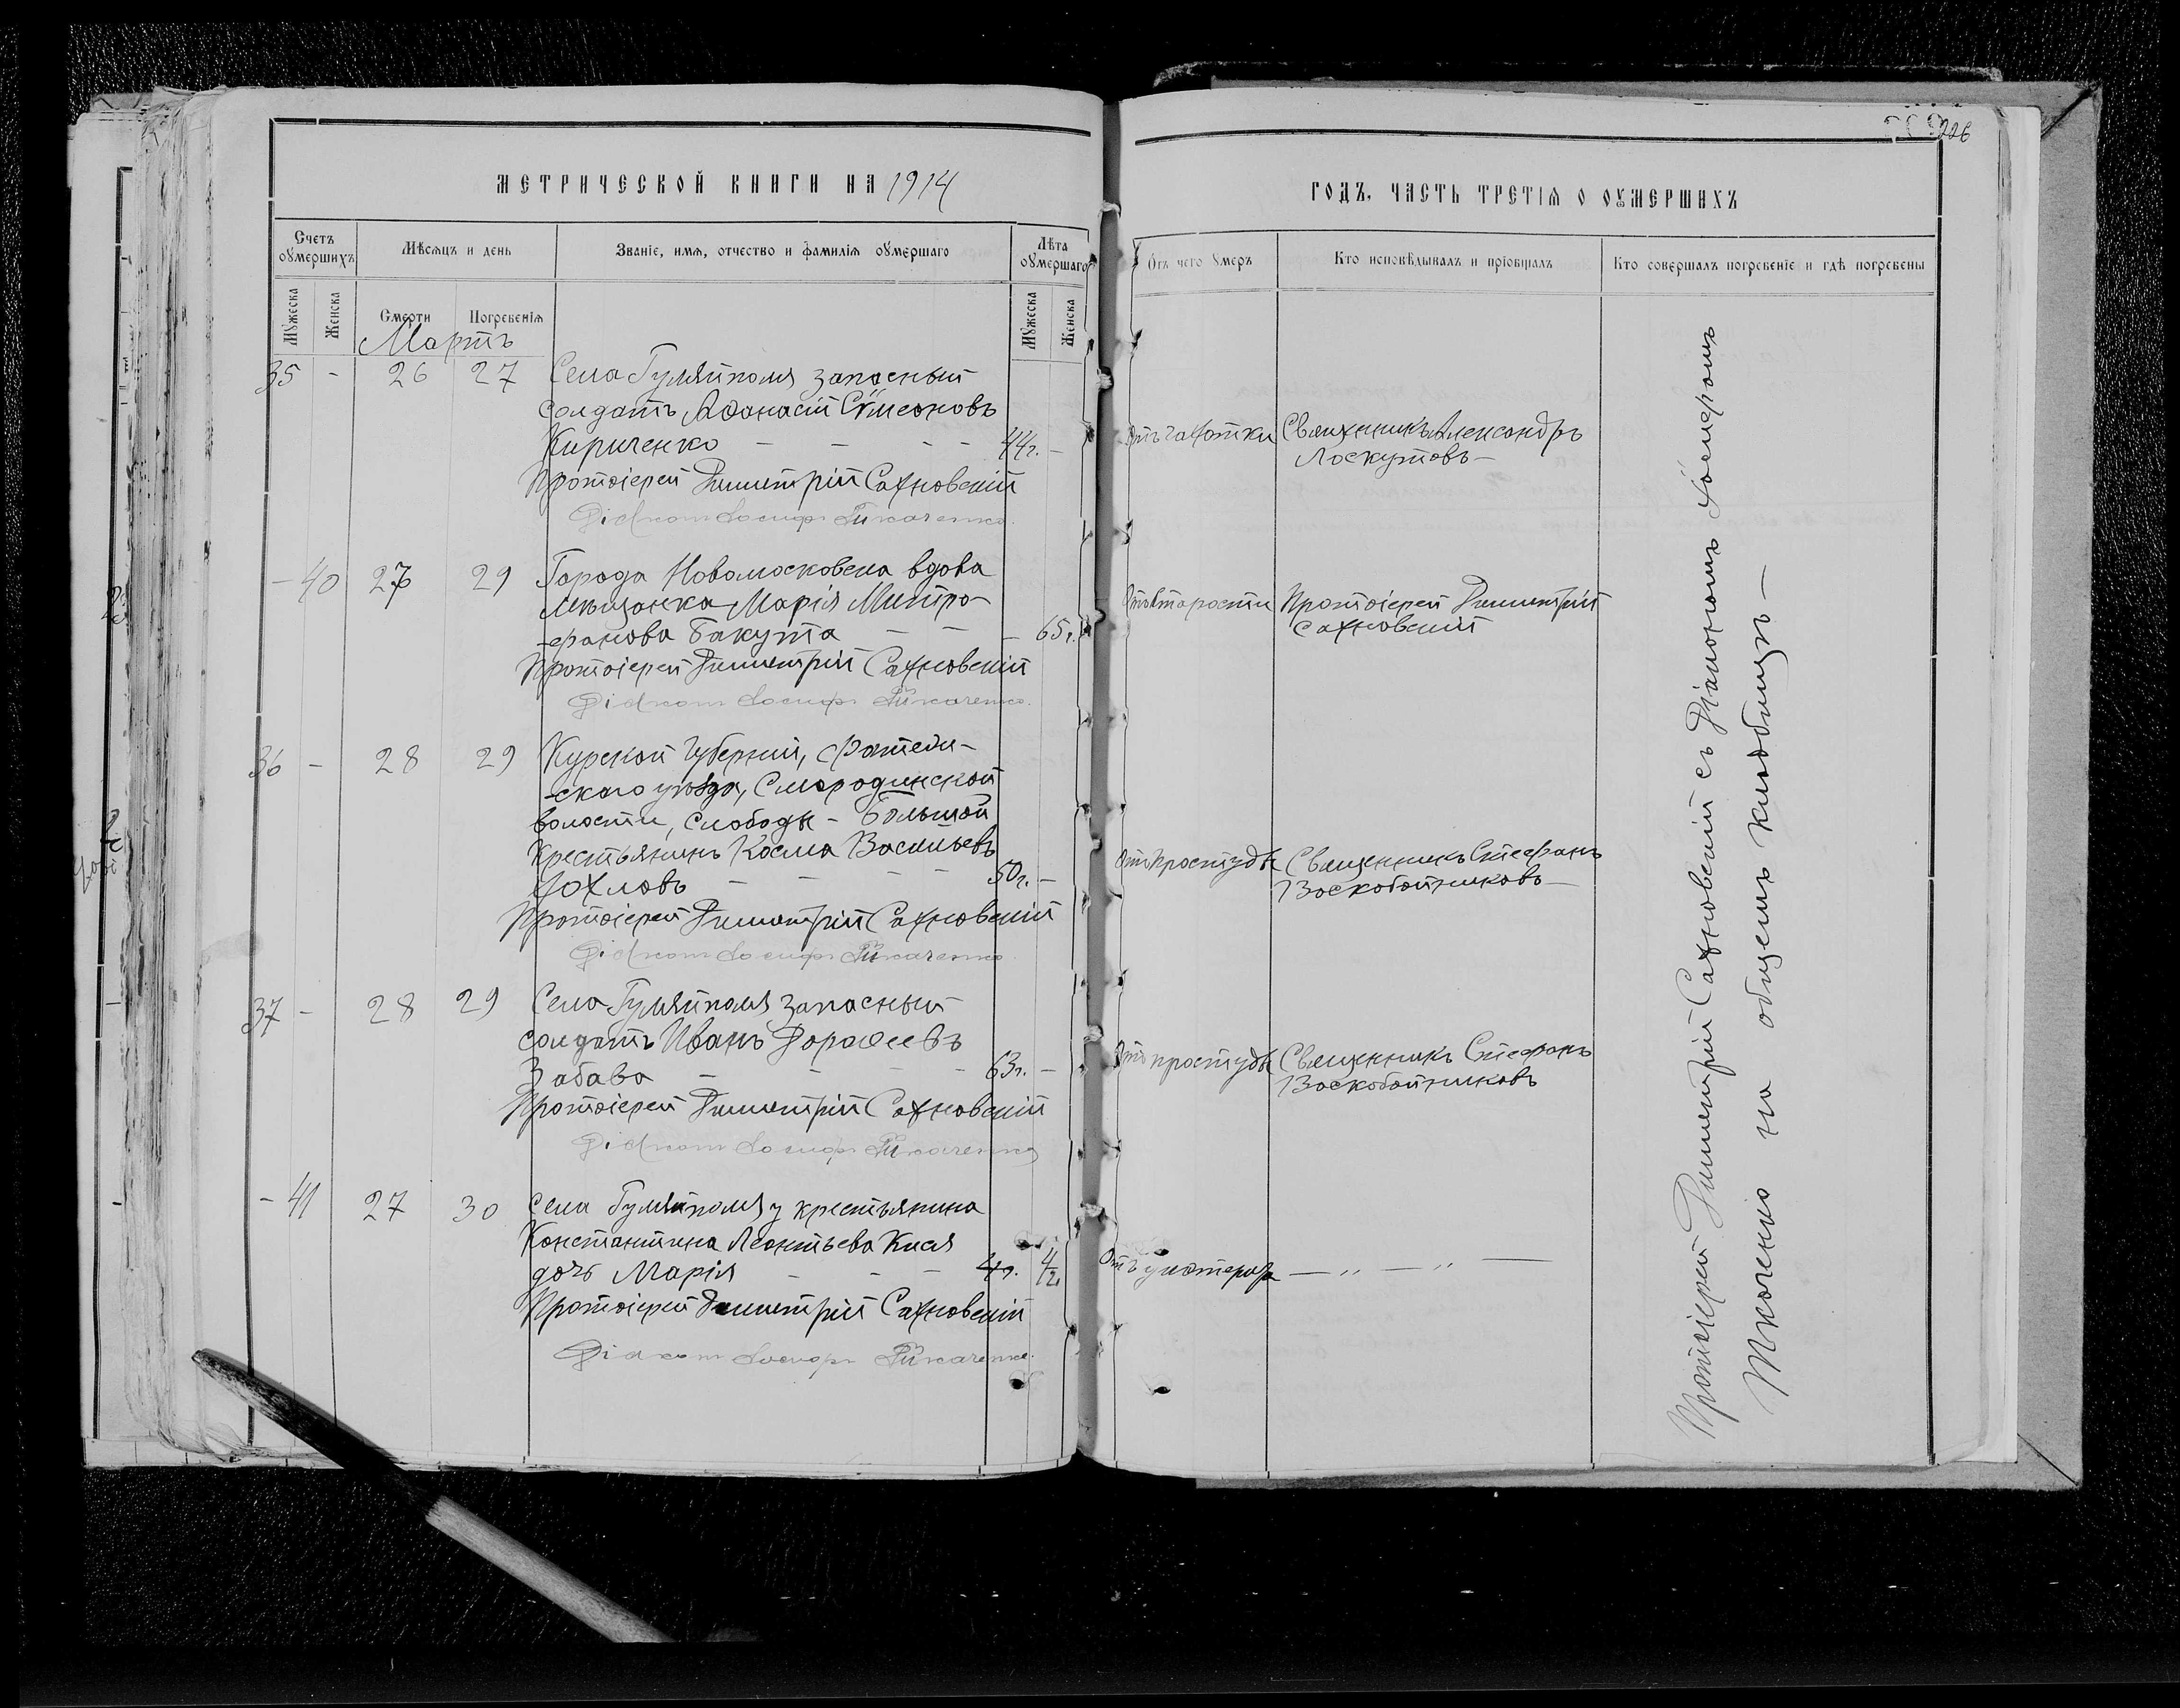 226
МЕТРИЧЕСКОЙ КНИГИ НА 1914
ГОДЪ, ЧАСТЬ ТРЕТІѦ О ОУМЕРШИХЪ
Счетъ оумершихъ
Мѣсѧцъ и день
Званіе, имѧ, отчество и фамиліѧ оумершаго
Лѣта оумершаго
Отъ чего умеръ
Кто исповѣдывалъ и пріобщалъ
Кто совершалъ погребеніе и гдѣ погребены
Мужеска
Женска
Смерти
Погребеніѧ
Мужеска
Женска
Мартъ
35 - 26 27 Села Гуляйполя запасный
солдатъ Аѳанасій Сѵмеоновъ
Кириченко - - - - 44г. -
Отъ чахотки
Священникъ Александръ
Лоскутовъ -
Протоіерей Димитрій Сахновскій
Діаконъ Іосифъ Ткаченко.
- 40 27 29 Города Новомосковска вдова
мѣщанка Марія Митро-
-фанова Бакута - - - 65г.
Отъ старости
Протоіерей Димитрій
Сахновскій
Протоіерей Димитрій Сахновскій
Діаконъ Іосифъ Ткаченко.
36 - 28 29 Курской губерніи, Фатеж-
-скаго уѣзда, Смородинской
волости, слободы - Большой
крестьянинъ Косма Васильевъ
Хохловъ - - - - 50г. -
Отъ простуды
Священникъ Стефанъ
Воскобойниковъ -
Протоіерей Димитрій Сахновскій
Діаконъ Іосифъ Ткаченко
37 - 28 29 Села Гуляйполя запасный
солдатъ Иванъ Дороѳеевъ
Забава - - - - 63г. -
Отъ простуды
Священникъ Стефанъ
Воскобойниковъ
Протоіерей Димитрій Сахновскій
Діаконъ Іосифъ Ткаченко
- 41 27 30 Села Гуляйполя у крестьянина
Константина Леонтьева
дочь Марія - - -
— „ — „ —
Протоіерей Димитрій Сахновскій
Діаконъ Іосифъ Ткаченко.
Протоіерей Димитрій Сахновскій съ Діакономъ Іосифомъ
Ткаченко на общемъ кладбищѣ -